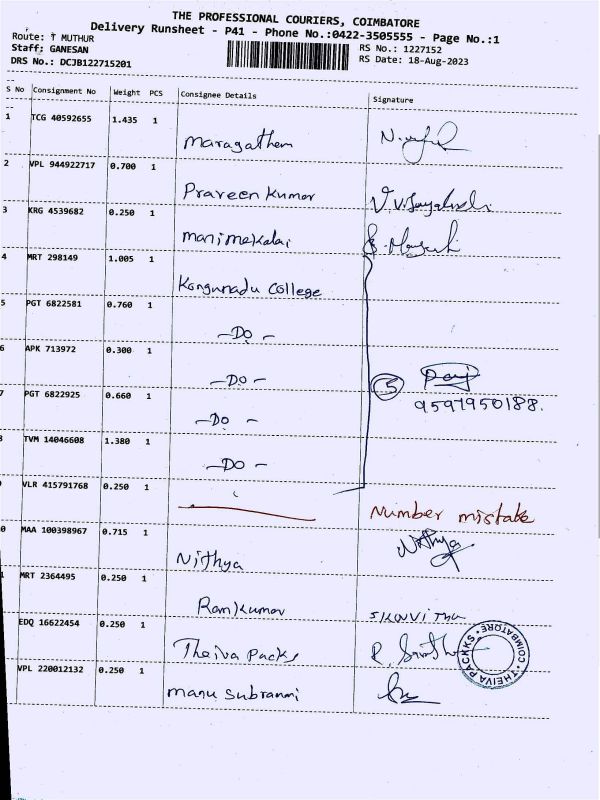 THE PROFESSIONAL COURIERS, COIMBATORE
Delivery Runsheet - P41 - Phone No.:0422-3505555 - Page No.:1
Route: T MUTHUR
RS No.: 1227152
Staff: GANESAN
RS Date: 18-Aug-2023
DRS No.: DCJB122715201
S No Consignment No Weight PCS Consignee Details Signature
1 TCG 40592655 1.435 1 Maragatham
2 VPL 944922717 0.700 1 Praveen Kumar
3 KRG 4539682 0.250 1 manimekalai
4 MRT 298149 1.005 1 Kongunadu College
5 PGT 6822581 0.760 1 -Do-
6 APK 713972 0.300 1 -Do-
5
9597950188.
7 PGT 6822925 0.660 1 -Do-
TVM 14046608 1.380 1 -Do-
VLR 415791768 0.250 1 Number mistake
0 MAA 100398967 0.715 1 Nithya Nithya
MRT 2364495 0.250 1 Ramkumar
EDQ 16622454 0.250 1 Theiva Packs
THEIVA PACKKS * COIMBATORE *
VPL 220012132 0.250 1 manu Subramni